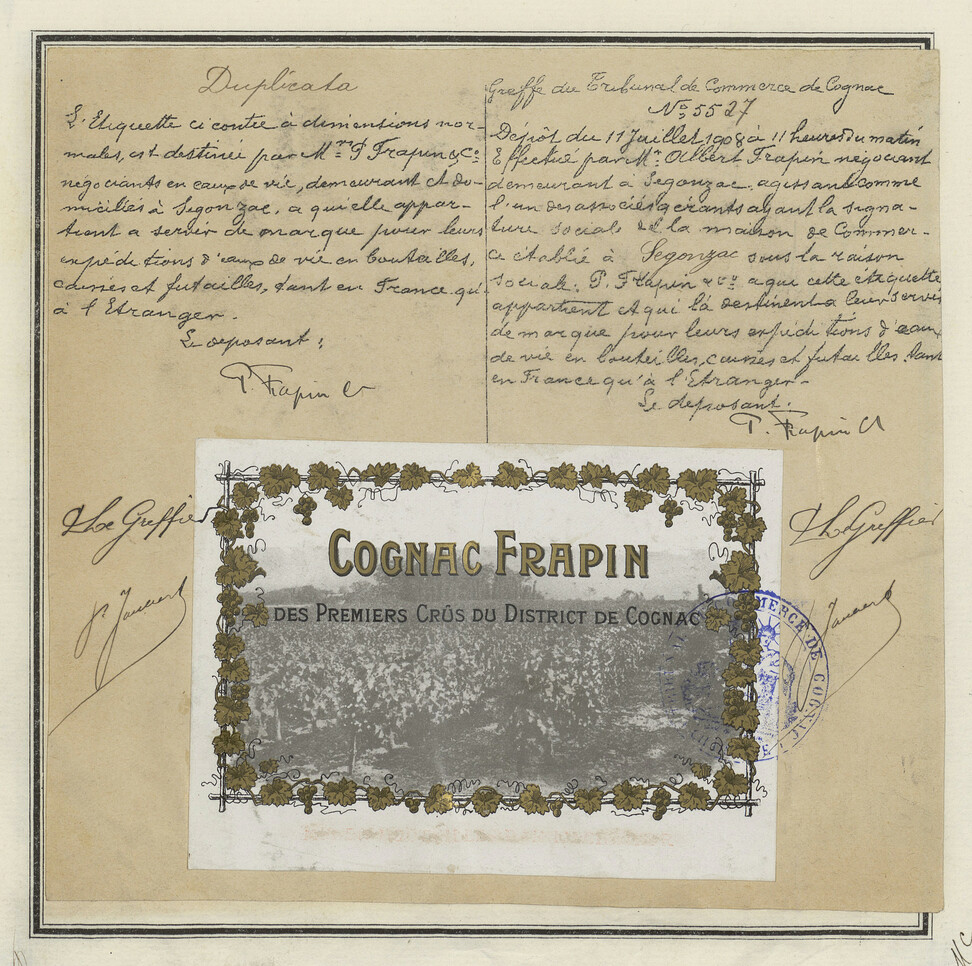 Duplicata
L'Etiquette ci contre à dimensions nor-
males, est destinée par Mrs P. Frapin & Co
négociants en eaux de vie, demeurant et do-
miciliés à Segonzac, a qui elle appar-
tient a servir de marque pour leurs
expéditions d'eaux de vie en bouteilles,
caisses et futailles, tant en France qu'
à l'Etranger.
Le deposant :
P. Frapin Co
Greffe du Tribunal de Commerce de Cognac
No 5527
Dépôt du 11 Juillet 1908 à 11 heures du matin
Effectué par Mr Albert Frapin négociant
demeurant à Segonzac agissant comme
l'un des associés gérants ayant la signa-
ture sociale de la maison de Commer-
ce établie à Segonzac sous la raison
sociale: P. Frapin & Co a qui cette étiquette
appartient et qui la destinent a leur servir
de marque pour leurs expéditions d'eaux
de vie en bouteilles, caisses et futailles, tant
en France qu'à l'Etranger-
Le deposant:
P. Frapin Co
Le Greffier
Le Greffier
COGNAC FRAPIN
DES PREMIERS CRÛS DU DISTRICT DE COGNAC
COMMERCE DE COGNAC